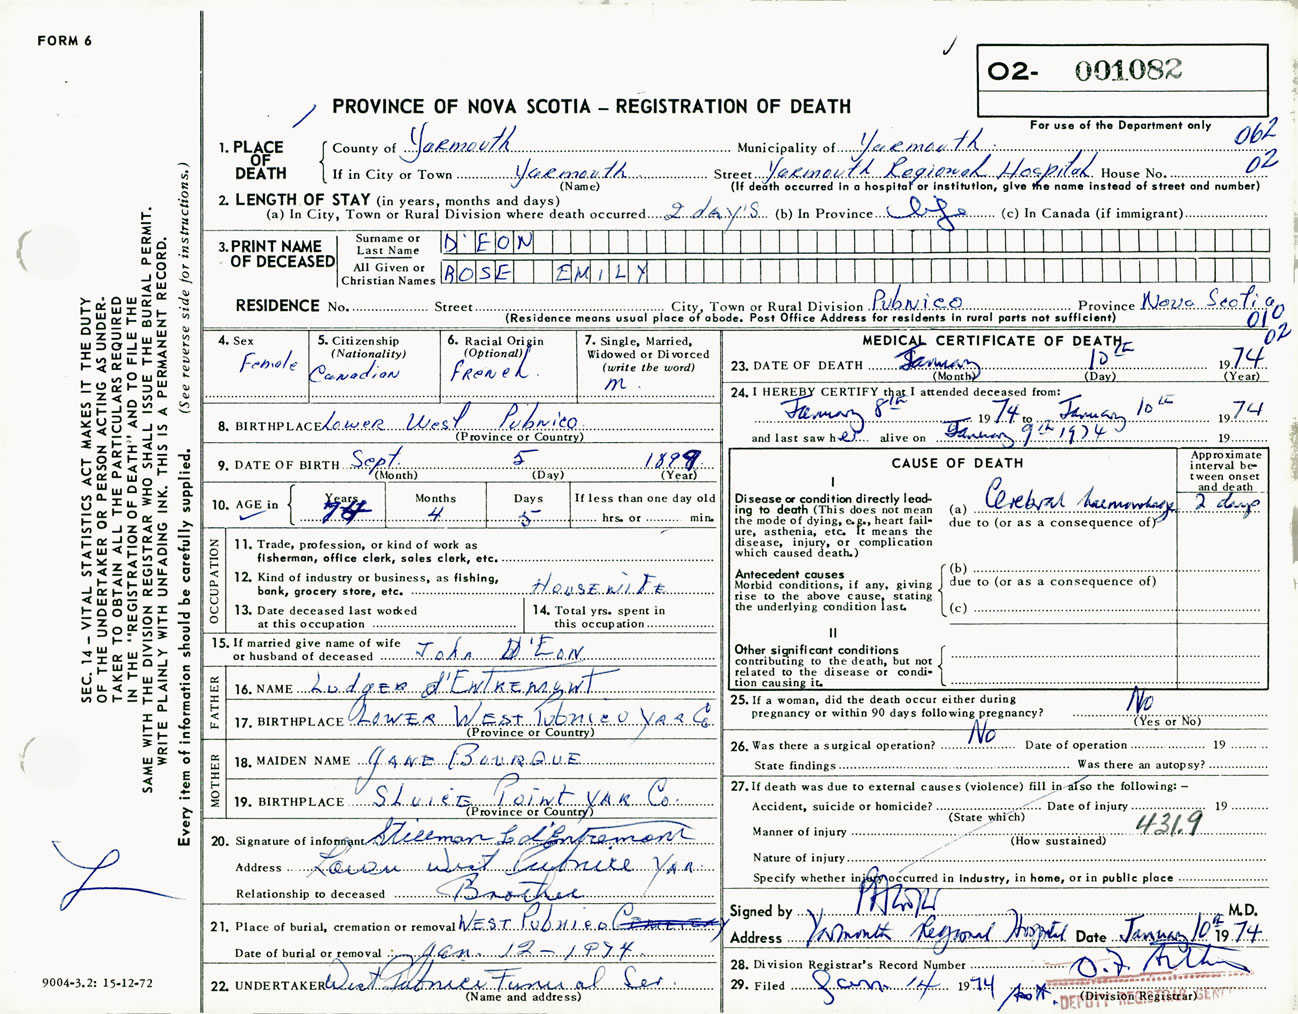 FORM 6
O2- 001082
PROVINCE OF NOVA SCOTIA – REGISTRATION OF DEATH
For use of the Department only
062
02
1. PLACE OF DEATH
County of Yarmouth Municipality of Yarmouth
If in City or Town Yarmouth (Name) Street Yarmouth Regional Hospital House No.
(If death occurred in a hospital or institution, give the name instead of street and number)
2. LENGTH OF STAY (in years, months and days)
(a) In City, Town or Rural Division where death occurred 2 day's (b) In Province life (c) In Canada (if immigrant)
3. PRINT NAME OF DECEASED
Surname or Last Name D'EON
All Given or Christian Names ROSE EMILY
RESIDENCE No. Street City, Town or Rural Division Pubnico Province Nova Scotia
(Residence means usual place of abode. Post Office Address for residents in rural parts not sufficient)
010
02
4. Sex Female
5. Citizenship (Nationality) Canadian
6. Racial Origin (Optional) French
7. Single, Married, Widowed or Divorced (write the word) M.
8. BIRTHPLACE Lower West Pubnico
(Province or Country)
9. DATE OF BIRTH Sept. 5 1899
(Month) (Day) (Year)
10. AGE in Years 74 Months 4 Days 5 If less than one day old hrs. or min.
OCCUPATION
11. Trade, profession, or kind of work as fisherman, office clerk, sales clerk, etc.
12. Kind of industry or business, as fishing, bank, grocery store, etc. HOUSEWIFE
13. Date deceased last worked at this occupation
14. Total yrs. spent in this occupation
15. If married give name of wife or husband of deceased John D'Eon
FATHER
16. NAME Ludger d'Entremont
17. BIRTHPLACE Lower West Pubnico Yar Co
(Province or Country)
MOTHER
18. MAIDEN NAME Jane Bourque
19. BIRTHPLACE Sluice Point Yar Co.
(Province or Country)
20. Signature of informant Stillman L d'Entremont
Address Lower West Pubnico Yar.
Relationship to deceased Brother
21. Place of burial, cremation or removal West Pubnico Cemetery
Date of burial or removal Jan. 12-1974
22. UNDERTAKER West Pubnico Funeral Ser
(Name and address)
MEDICAL CERTIFICATE OF DEATH
23. DATE OF DEATH January 10th 1974
(Month) (Day) (Year)
24. I HEREBY CERTIFY that I attended deceased from:
January 8th 1974 to January 10th 1974
and last saw her alive on January 9th 1974 19
CAUSE OF DEATH
Approximate interval between onset and death
I
Disease or condition directly leading to death (This does not mean the mode of dying, e.g., heart failure, asthenia, etc. It means the disease, injury, or complication which caused death.)
(a) Cerebral haemorrhage 2 days
due to (or as a consequence of)
Antecedent causes
Morbid conditions, if any, giving rise to the above cause, stating the underlying condition last.
(b)
due to (or as a consequence of)
(c)
II
Other significant conditions
contributing to the death, but not related to the disease or condition causing it.
25. If a woman, did the death occur either during pregnancy or within 90 days following pregnancy? No
(Yes or No)
26. Was there a surgical operation? No Date of operation 19
State findings Was there an autopsy?
27. If death was due to external causes (violence) fill in also the following: –
Accident, suicide or homicide? Date of injury 19
(State which)
Manner of injury 431.9
(How sustained)
Nature of injury
Specify whether injury occurred in industry, in home, or in public place
Signed by M.D.
Address Yarmouth Regional Hospital Date January 10th 1974
28. Division Registrar's Record Number
29. Filed Jan. 14 1974
(Division Registrar)
DEPUTY REGISTRAR GENERAL
SEC. 14 – VITAL STATISTICS ACT MAKES IT THE DUTY
OF THE UNDERTAKER OR PERSON ACTING AS UNDER-
TAKER TO OBTAIN ALL THE PARTICULARS REQUIRED
IN THE "REGISTRATION OF DEATH" AND TO FILE THE
SAME WITH THE DIVISION REGISTRAR WHO SHALL ISSUE THE BURIAL PERMIT.
WRITE PLAINLY WITH UNFADING INK. THIS IS A PERMANENT RECORD.
Every item of information should be carefully supplied. (See reverse side for instructions.)
9004-3.2: 15-12-72